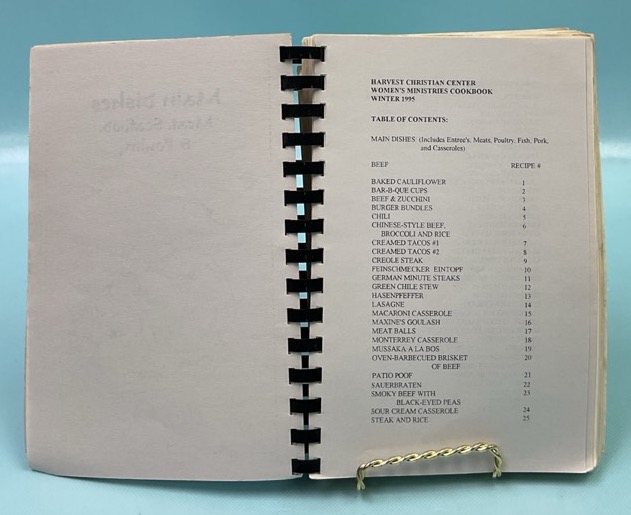 HARVEST CHRISTIAN CENTER
WOMEN'S MINISTRIES COOKBOOK
WINTER 1995
TABLE OF CONTENTS:
MAIN DISHES: (Includes Entree's, Meats, Poultry, Fish, Pork,
and Casseroles)
BEEF RECIPE #
BAKED CAULIFLOWER 1
BAR-B-QUE CUPS 2
BEEF & ZUCCHINI 3
BURGER BUNDLES 4
CHILI 5
CHINESE-STYLE BEEF, 6
BROCCOLI AND RICE
CREAMED TACOS #1 7
CREAMED TACOS #2 8
CREOLE STEAK 9
FEINSCHMECKER EINTOPF 10
GERMAN MINUTE STEAKS 11
GREEN CHILE STEW 12
HASENPFEFFER 13
LASAGNE 14
MACARONI CASSEROLE 15
MAXINE'S GOULASH 16
MEAT BALLS 17
MONTERREY CASSEROLE 18
MUSSAKA A LA BOS 19
OVEN-BARBECUED BRISKET 20
OF BEEF
PATIO POOF 21
SAUERBRATEN 22
SMOKY BEEF WITH 23
BLACK-EYED PEAS
SOUR CREAM CASSEROLE 24
STEAK AND RICE 25